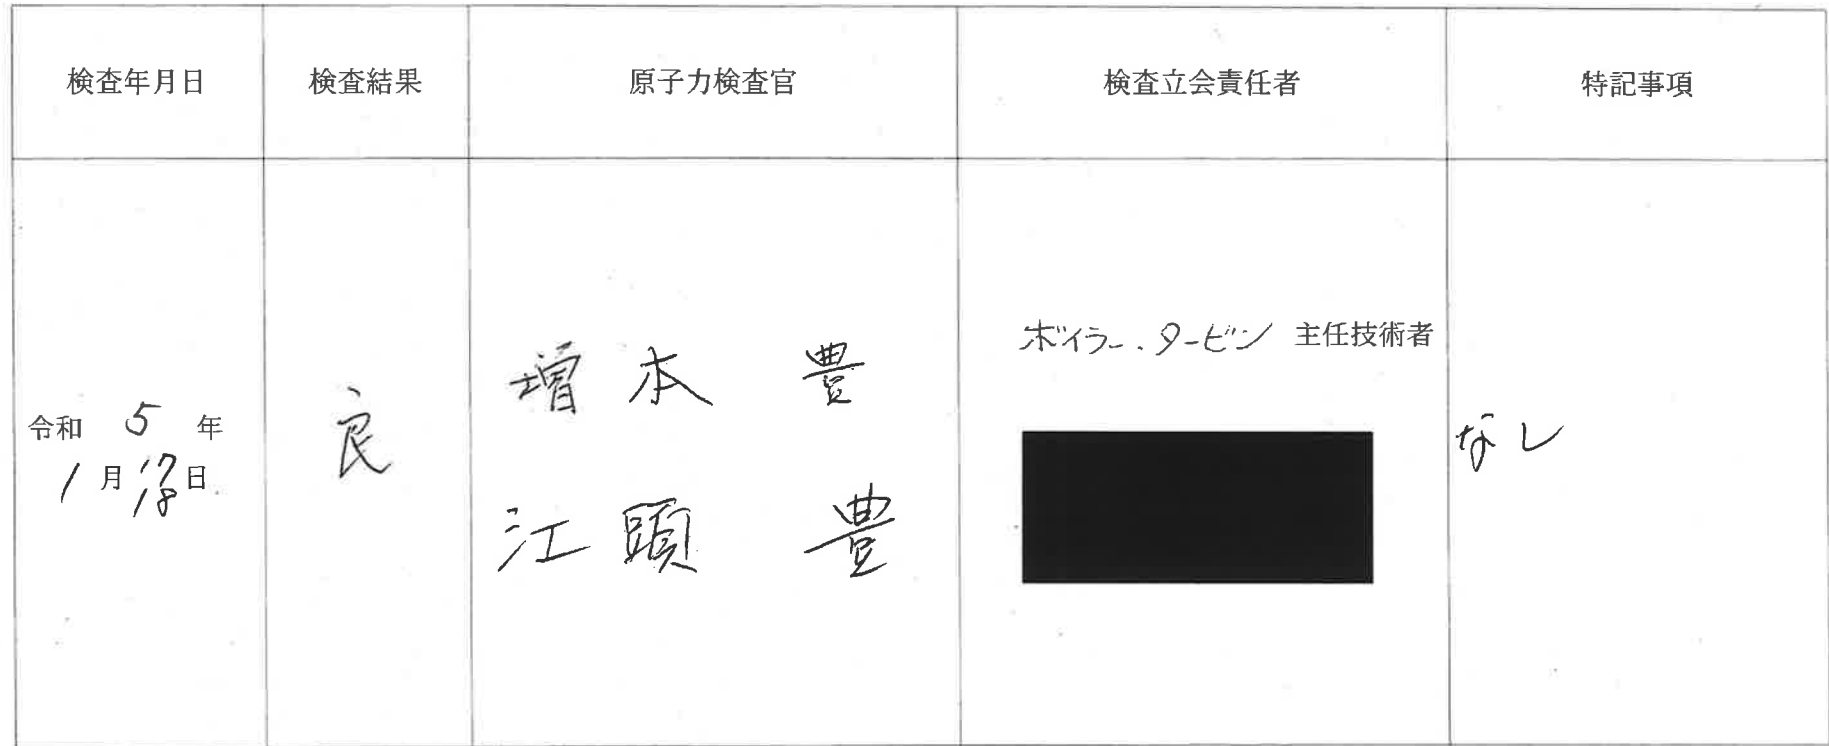 検査年月日
検査結果
原子力検査官
検査立会責任者
特記事項
令和 5 年
1 月 17 日
18
良
増本 豊
江頭 豊
ボイラー・タービン 主任技術者
なし